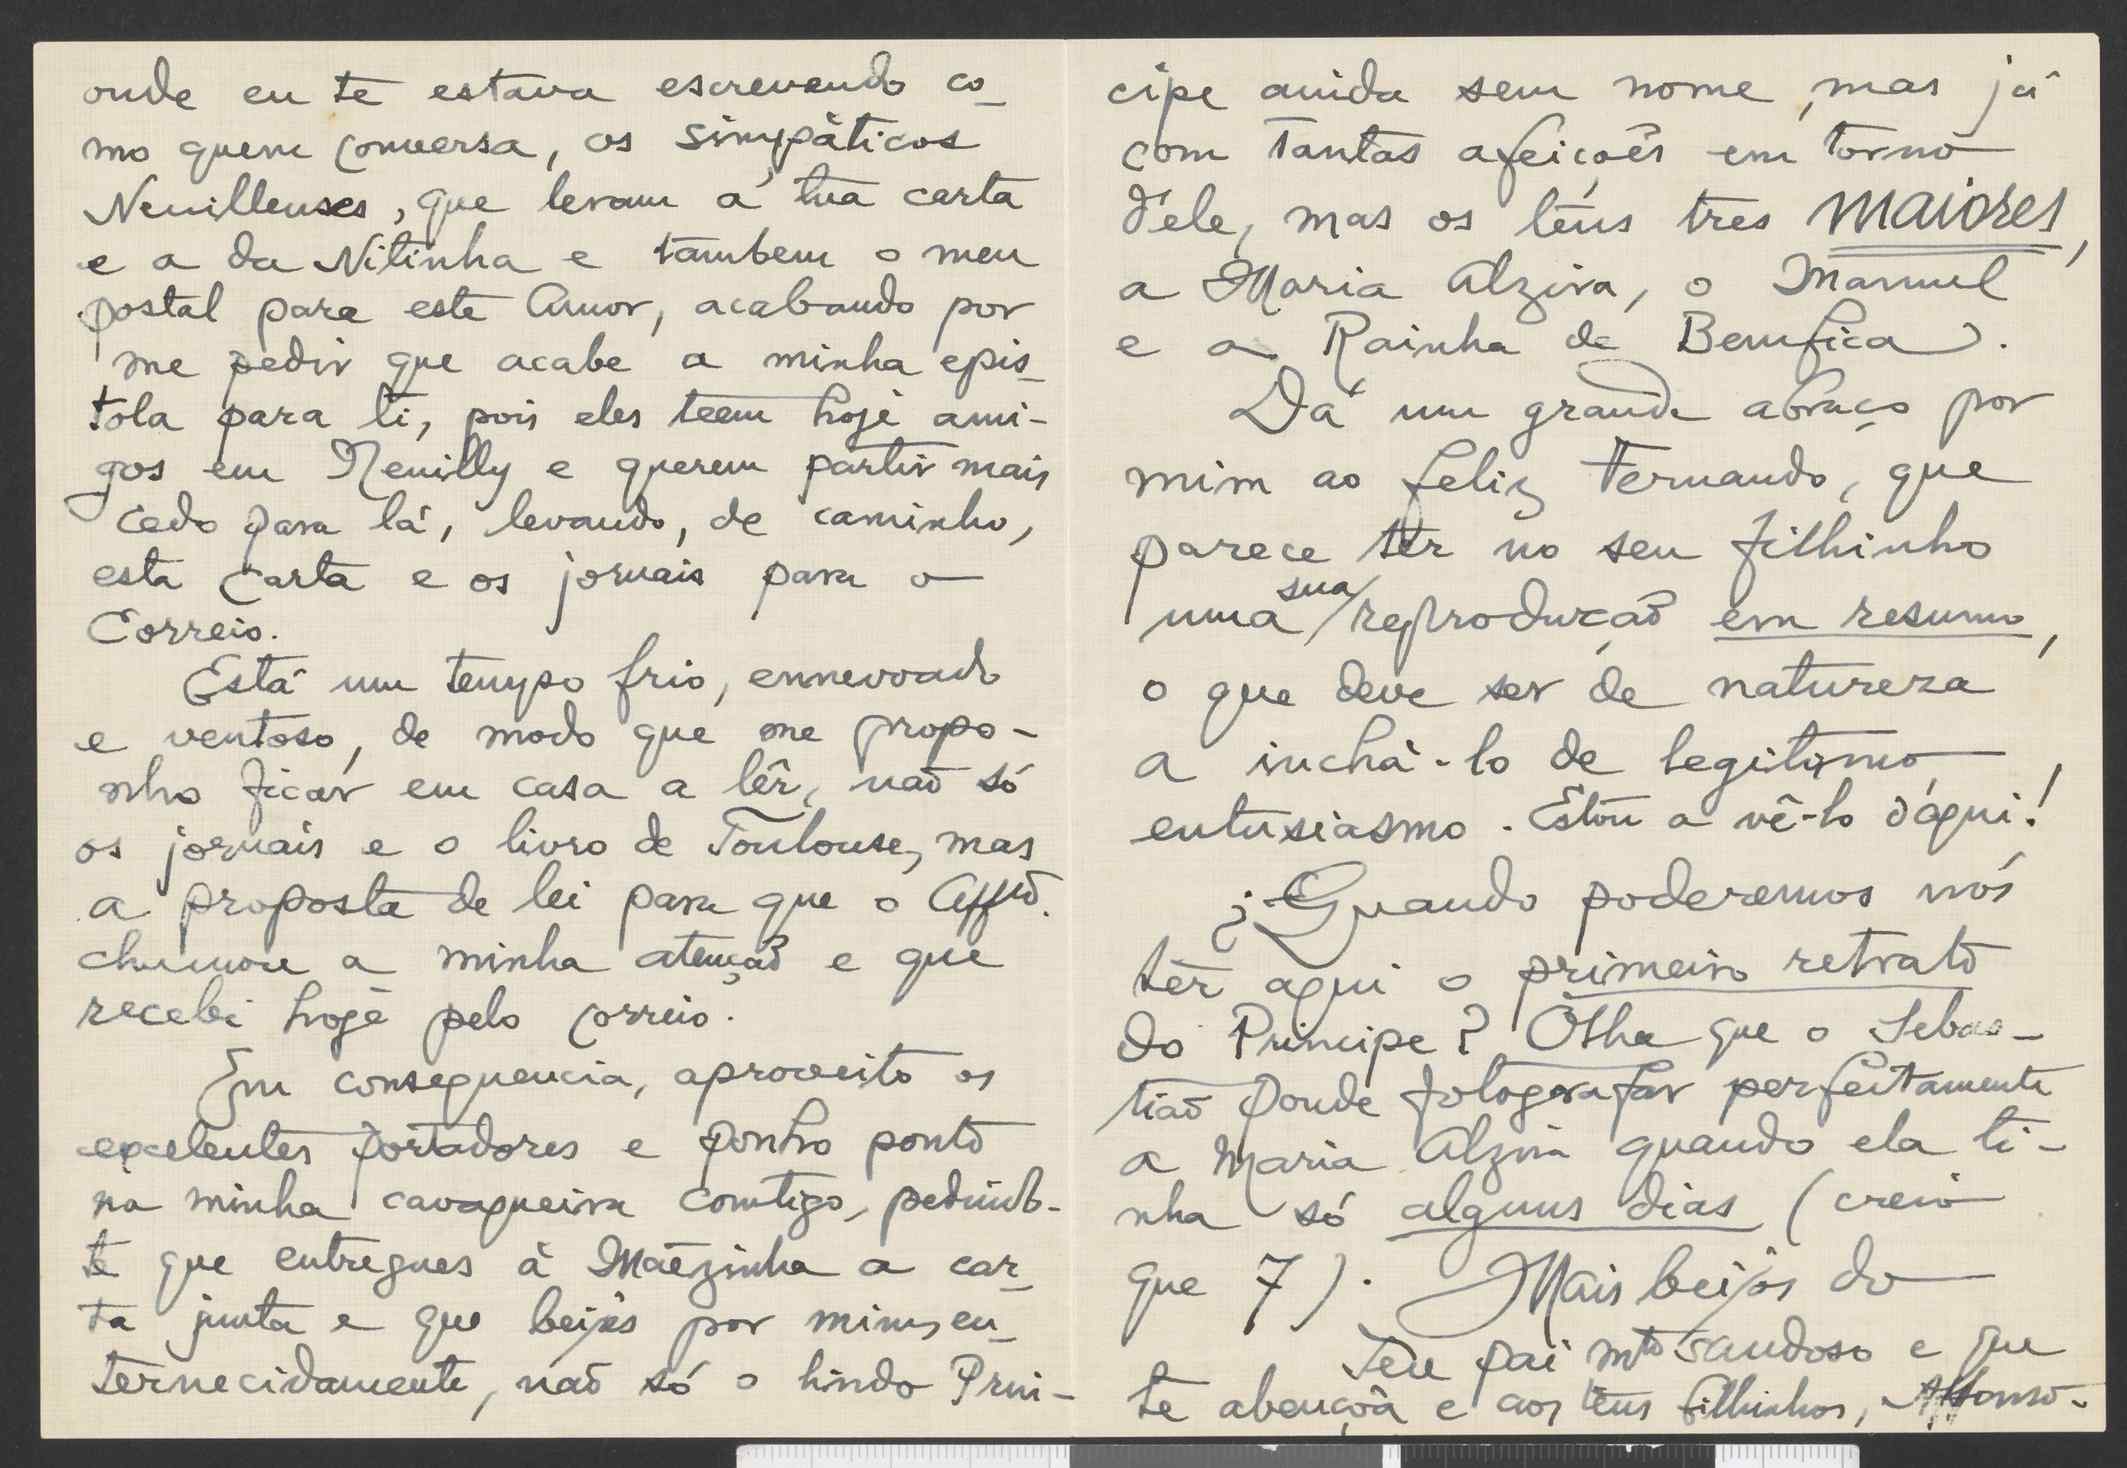 onde eu te estava escrevendo co_
mo quem conversa, os simpáticos
Neuillenses, que levam a tua carta
e a da Nitinha e tambem o meu
postal para este Amor, acabando por
me pedir que acabe a minha epis_
tola para ti, pois eles teem hoje ami-
gos em Neuilly e querem partir mais
cedo para lá, levando, de caminho,
esta carta e os jornais para o
Correio.
Está um tempo frio, ennevoado
e ventoso, de modo que me propo-
nho ficar em casa a lêr, não só
os jornais e o livro de Toulouse, mas
a proposta de lei para que o
chamou a minha atenção e que
recebi hoje pelo correio.
Em consequencia, aproveito os
excelentes portadores e ponho ponto
na minha cavaqueira comtigo, pedindo-
te que entregues à Mãezinha a car_
ta junta e que beijes por mim, en_
ternecidamente, não só o lindo Prin-
cipe ainda sem nome, mas já
com tantas afeições em torno
d'ele, mas os teus tres maiores,
a Maria Alzira, o Manuel
e a Rainha de Bemfica).
Dá um grande abraço por
mim ao feliz Fernando, que
parece ter no seu filhinho
uma sua reprodução em resumo,
o que deve ser de natureza
a inchá-lo de legitimo
entusiasmo. Estou a vê-lo d'aqui!
¿Quando poderemos nós
ter aqui o primeiro retrato
do Principe? Olha que o Sebas-
tião poude fotografar perfeitamente
a Maria Alzira quando ela ti-
nha só alguns dias (creio
que 7). Mais beijos do
Teu pai mto saudoso e que
te abençoa e aos teus filhinhos, Affonso.